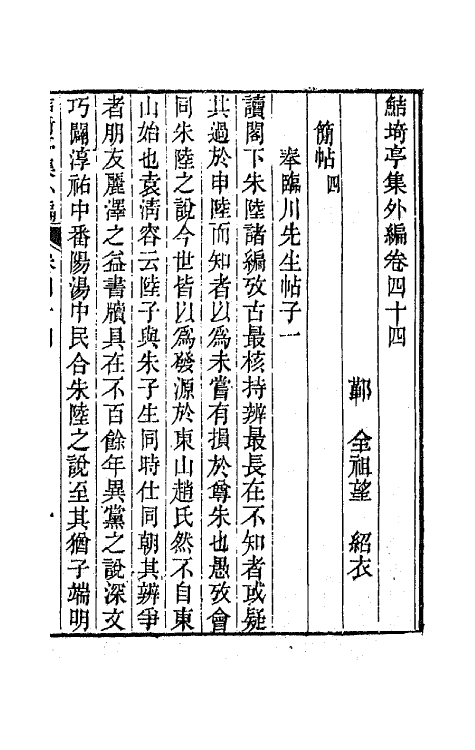 鮚埼亭集外編卷四十四
鄞 全祖望 紹衣
簡帖四
奉臨川先生帖子一
讀閣下朱陸諸編攷古最核持辨最長在不知者或疑
其過於申陸而知者以爲未嘗有損於尊朱也愚攷會
同朱陸之說今世皆以爲發源於東山趙氏然不自東
山始也袁清容云陸子與朱子生同時仕同朝其辨爭
者朋友麗澤之益書牘具在不百餘年異黨之說深文
巧闢淳祐中番陽湯中民合朱陸之說至其猶子端明